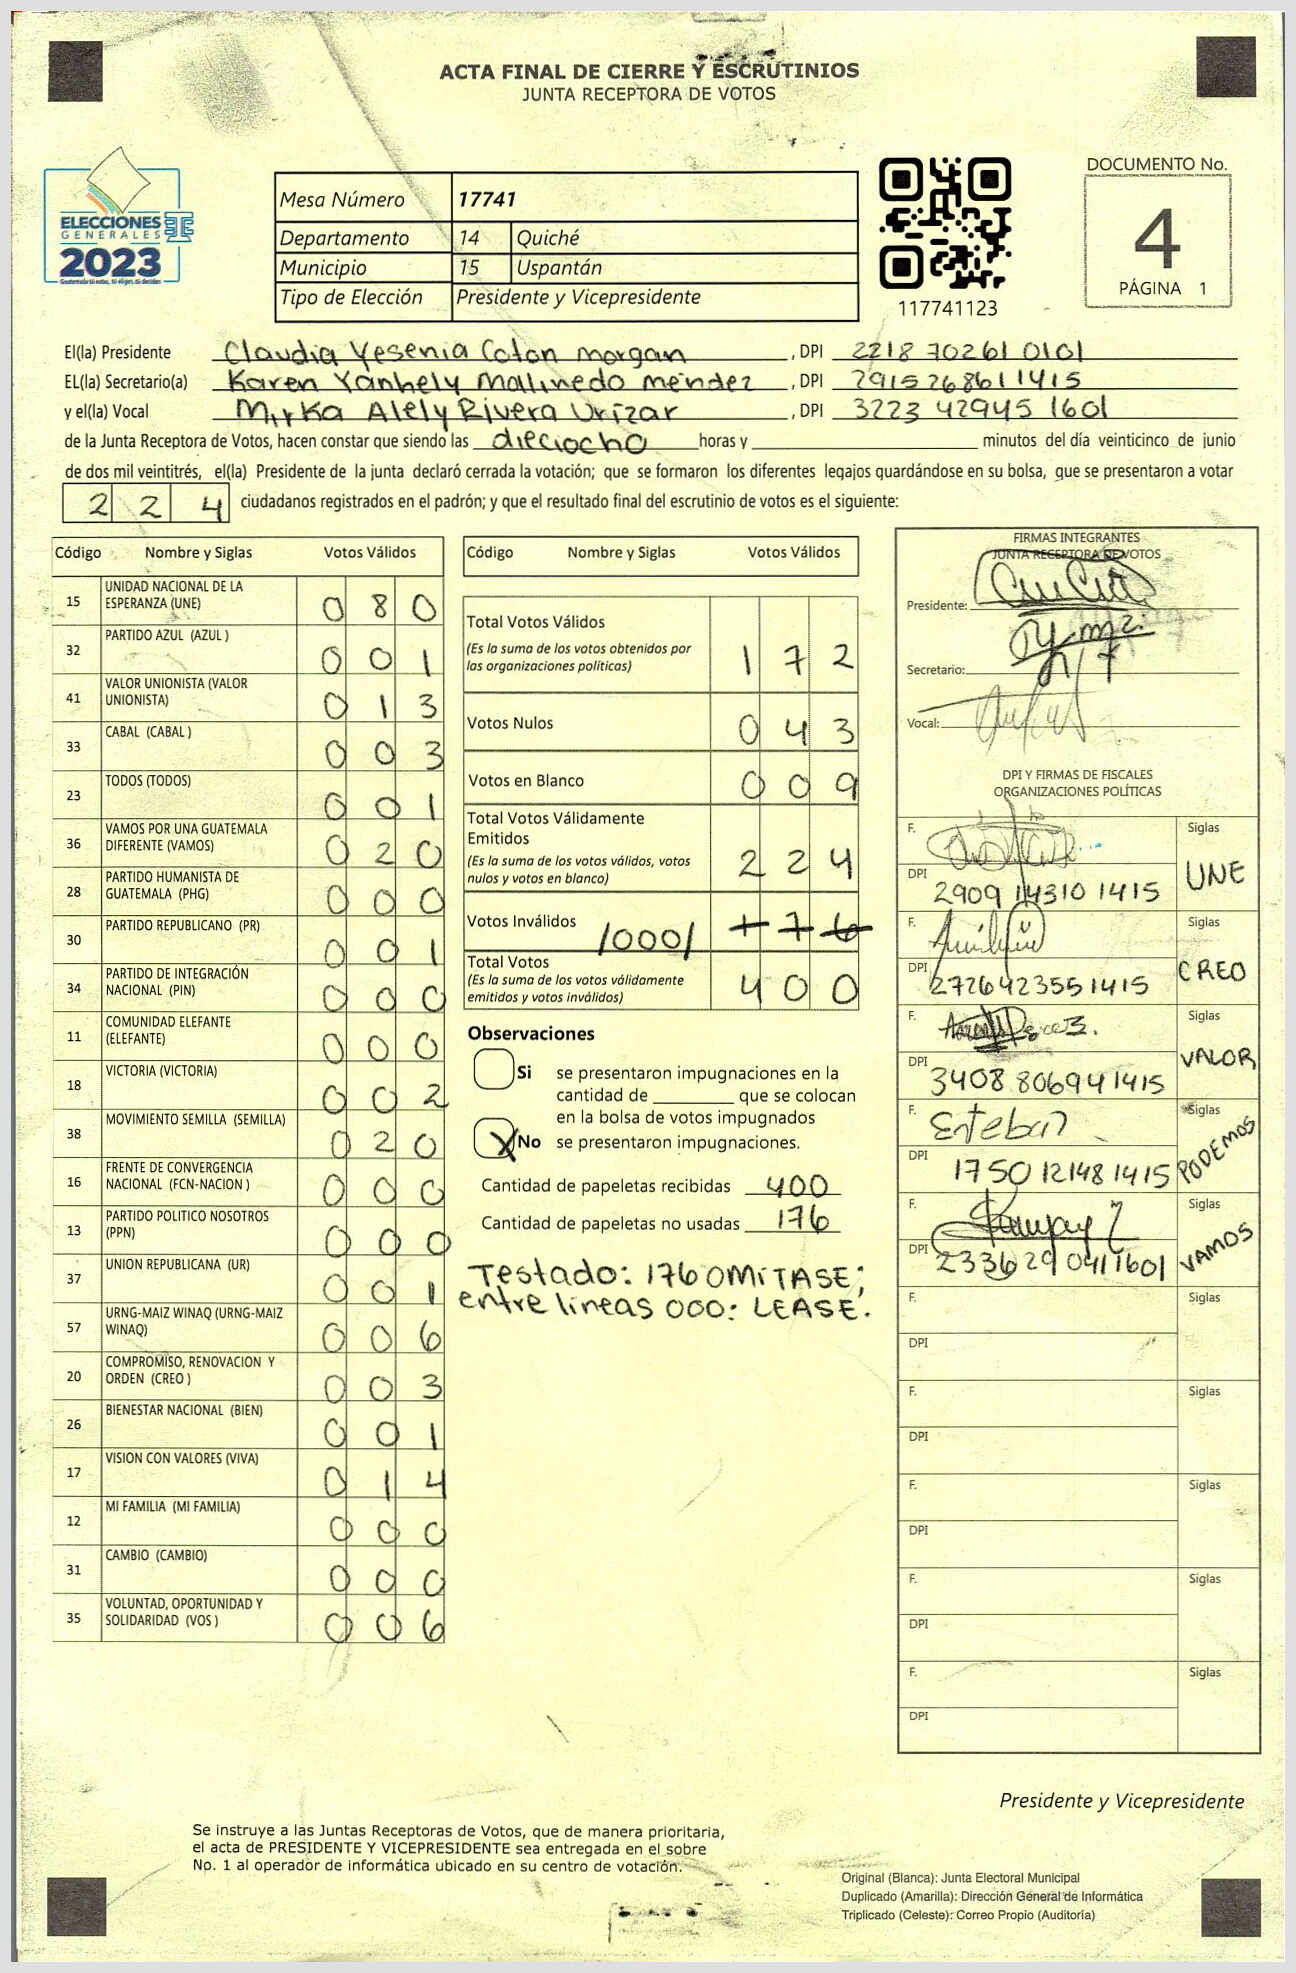 ACTA FINAL DE CIERRE Y ESCRUTINIOS
JUNTA RECEPTORA DE VOTOS
ELECCIONES
GENERALES
2023
Mesa Número 17741
Departamento 14 Quiché
Municipio 15 Uspantán
Tipo de Elección Presidente y Vicepresidente
117741123
DOCUMENTO No.
4
PÁGINA 1
El(la) Presidente Claudia Yesenia Coton Morgan, DPI 2218 70261 0101
EL(la) Secretario(a) Karen Yanhely Malinedo Méndez, DPI 2915268611415
y el(la) Vocal Mirka Alely Rivera Urízar, DPI 3223 42945 1601
de la Junta Receptora de Votos, hacen constar que siendo las dieciocho horas y minutos del día veinticinco de junio
de dos mil veintitrés, el(la) Presidente de la junta declaró cerrada la votación; que se formaron los diferentes legajos guardándose en su bolsa, que se presentaron a votar
2 2 4 ciudadanos registrados en el padrón; y que el resultado final del escrutinio de votos es el siguiente:
Código Nombre y Siglas Votos Válidos
15 UNIDAD NACIONAL DE LA ESPERANZA (UNE) 0 8 0
32 PARTIDO AZUL (AZUL ) 0 0 1
41 VALOR UNIONISTA (VALOR UNIONISTA) 0 1 3
33 CABAL (CABAL ) 0 0 3
23 TODOS (TODOS) 0 0 1
36 VAMOS POR UNA GUATEMALA DIFERENTE (VAMOS) 0 2 0
28 PARTIDO HUMANISTA DE GUATEMALA (PHG) 0 0 0
30 PARTIDO REPUBLICANO (PR) 0 0 1
34 PARTIDO DE INTEGRACIÓN NACIONAL (PIN) 0 0 0
11 COMUNIDAD ELEFANTE (ELEFANTE) 0 0 0
18 VICTORIA (VICTORIA) 0 0 2
38 MOVIMIENTO SEMILLA (SEMILLA) 0 2 0
16 FRENTE DE CONVERGENCIA NACIONAL (FCN-NACION ) 0 0 0
13 PARTIDO POLITICO NOSOTROS (PPN) 0 0 0
37 UNION REPUBLICANA (UR) 0 0 1
57 URNG-MAIZ WINAQ (URNG-MAIZ WINAQ) 0 0 6
20 COMPROMISO, RENOVACION Y ORDEN (CREO ) 0 0 3
26 BIENESTAR NACIONAL (BIEN) 0 0 1
17 VISION CON VALORES (VIVA) 0 1 4
12 MI FAMILIA (MI FAMILIA) 0 0 0
31 CAMBIO (CAMBIO) 0 0 0
35 VOLUNTAD, OPORTUNIDAD Y SOLIDARIDAD (VOS ) 0 0 6
Código Nombre y Siglas Votos Válidos
Total Votos Válidos 1 7 2
(Es la suma de los votos obtenidos por
las organizaciones políticas)
Votos Nulos 0 4 3
Votos en Blanco 0 0 9
Total Votos Válidamente
Emitidos 2 2 4
(Es la suma de los votos válidos, votos
nulos y votos en blanco)
Votos Inválidos /000/ 1 7 6
Total Votos 4 0 0
(Es la suma de los votos válidamente
emitidos y votos inválidos)
Observaciones
Si se presentaron impugnaciones en la
cantidad de que se colocan
en la bolsa de votos impugnados
X No se presentaron impugnaciones.
Cantidad de papeletas recibidas 400
Cantidad de papeletas no usadas 176
Testado: 176 OMITASE;
entre líneas 000: LEASE.
FIRMAS INTEGRANTES
JUNTA RECEPTORA DE VOTOS
Presidente:
Secretario:
Vocal:
DPI Y FIRMAS DE FISCALES
ORGANIZACIONES POLÍTICAS
F. Siglas
DPI 2909 14310 1415 UNE
F. Siglas
DPI 2726423551415 CREO
F. Siglas
DPI 3408 806941415 VALOR
F. Esteban Siglas
DPI 1750 12148 1415 PODEMOS
F. Siglas
DPI 2336 29 0411601 VAMOS
F. Siglas
DPI
F. Siglas
DPI
F. Siglas
DPI
F. Siglas
DPI
F. Siglas
DPI
Presidente y Vicepresidente
Se instruye a las Juntas Receptoras de Votos, que de manera prioritaria,
el acta de PRESIDENTE Y VICEPRESIDENTE sea entregada en el sobre
No. 1 al operador de informática ubicado en su centro de votación.
Original (Blanca): Junta Electoral Municipal
Duplicado (Amarilla): Dirección General de Informática
Triplicado (Celeste): Correo Propio (Auditoría)